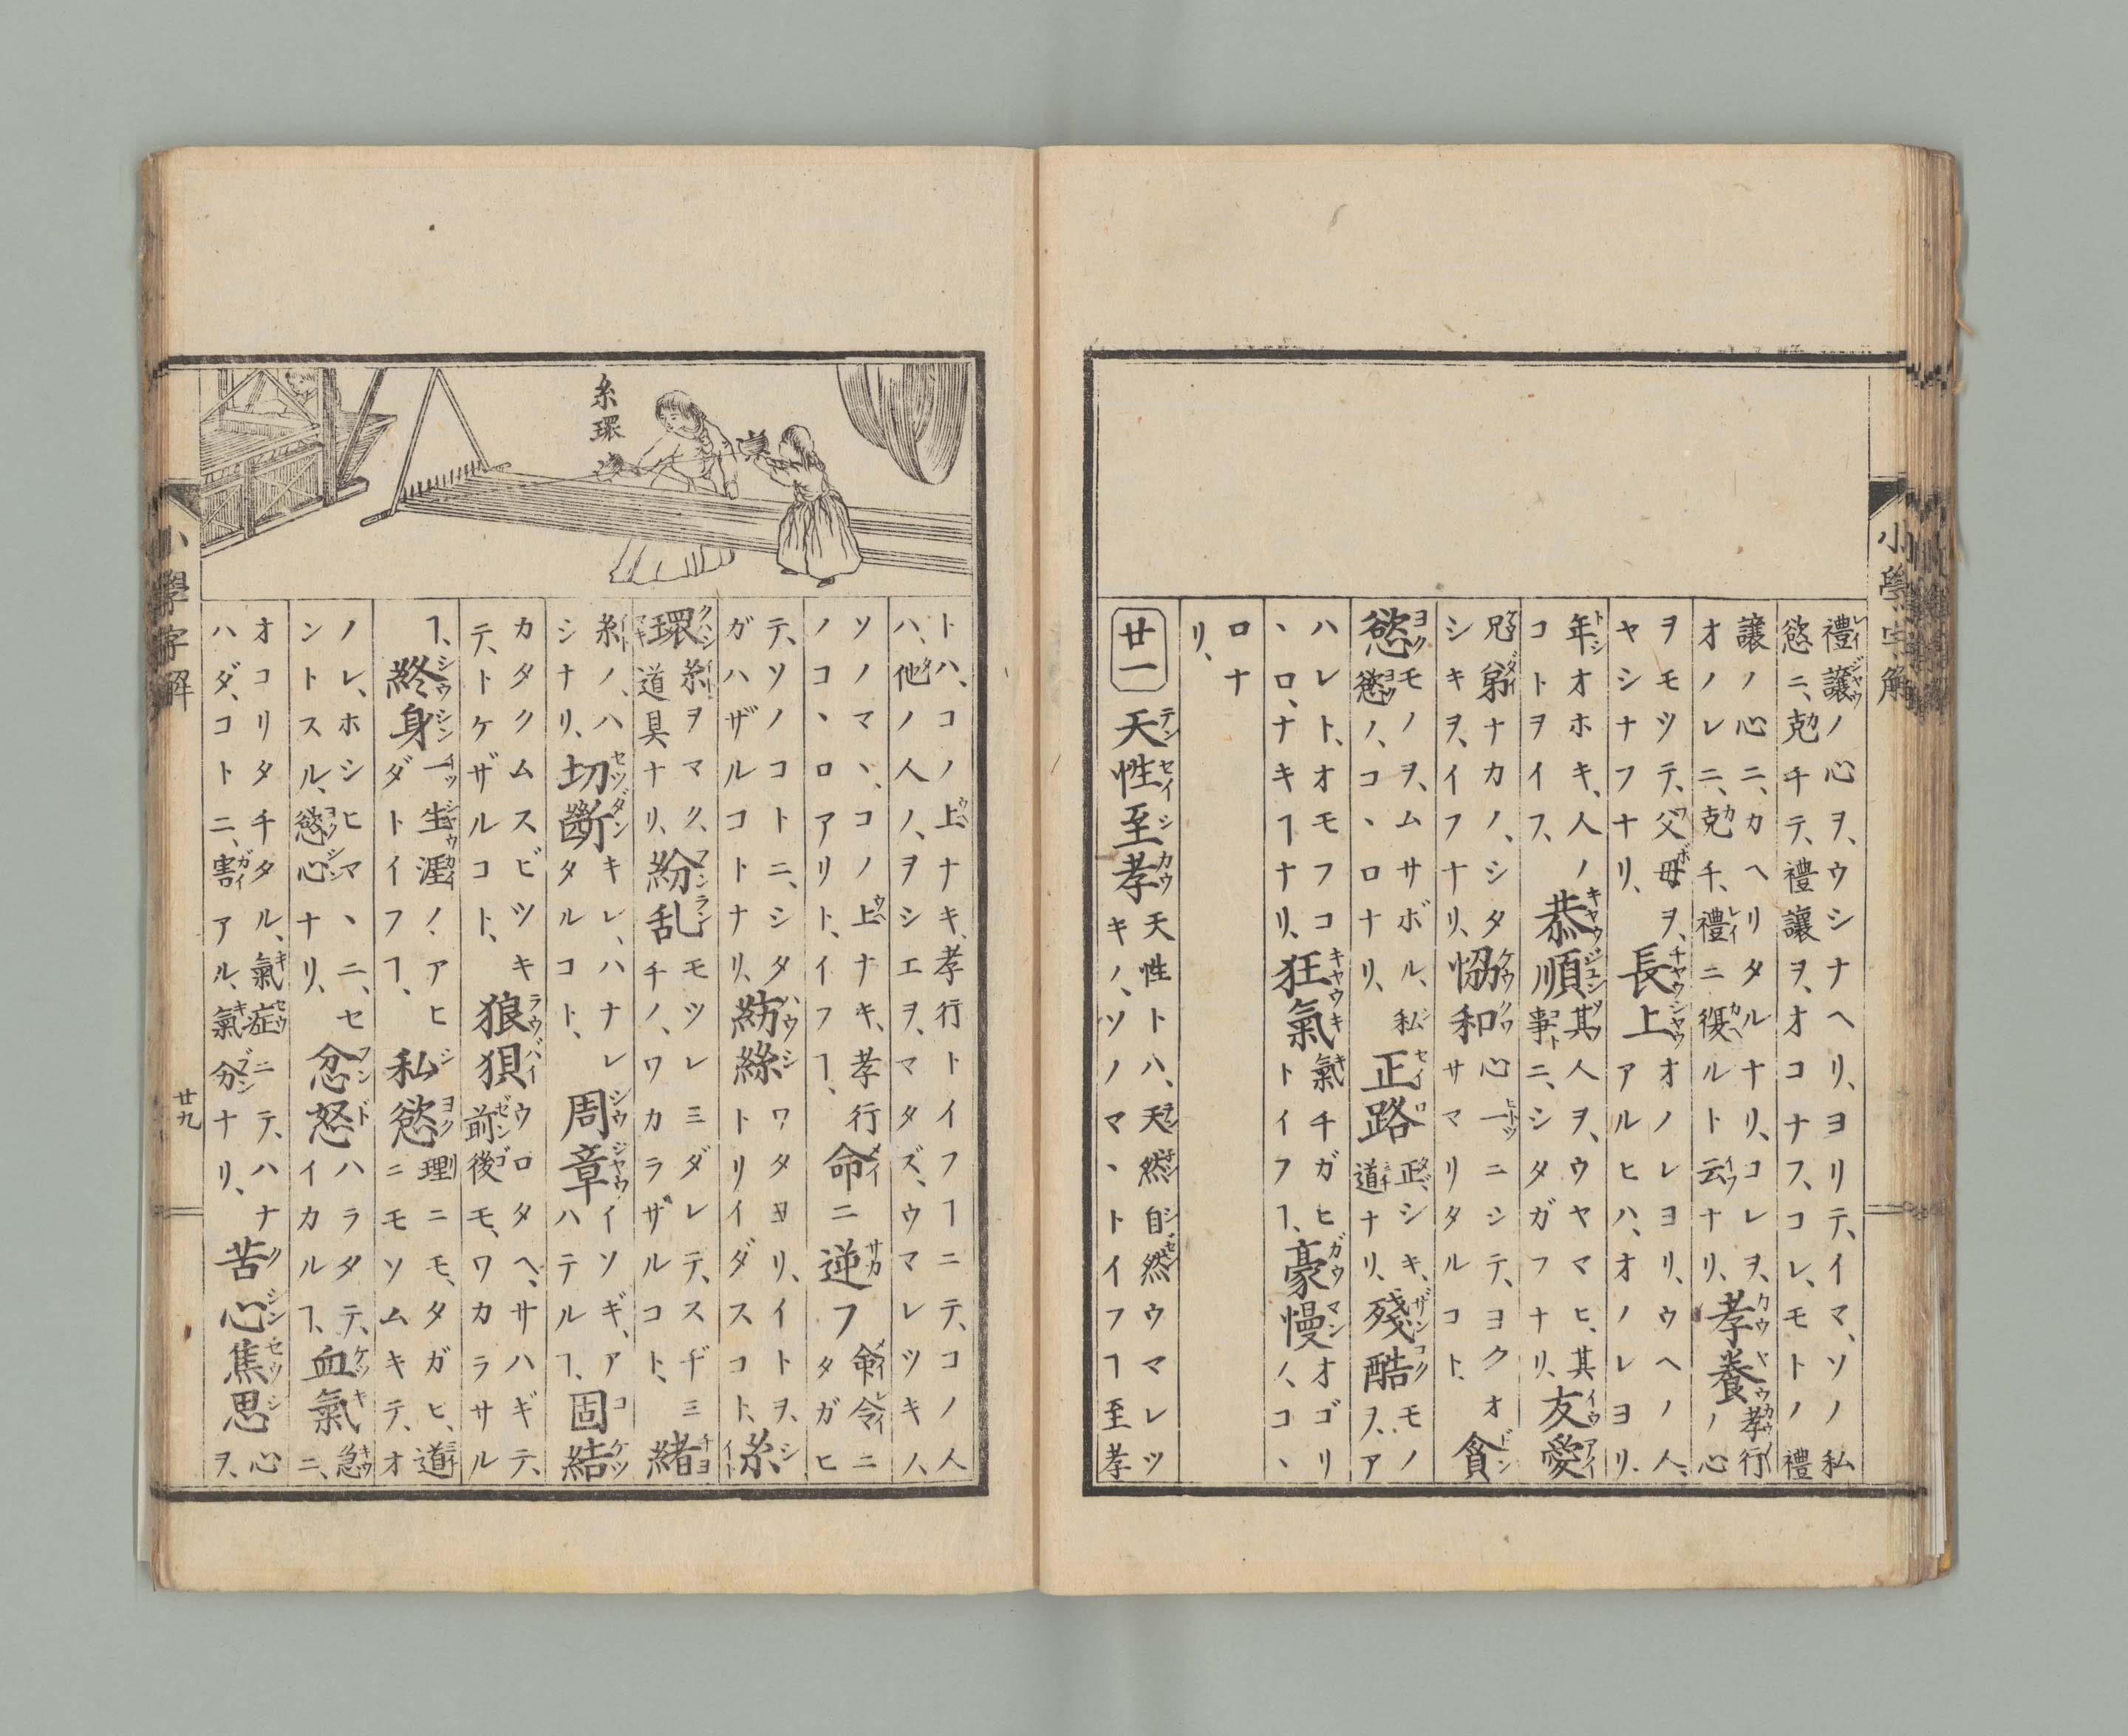 小學字解
禮讓ノ心ヲ、ウシナヘリ、ヨリテ、イマ、ソノ私
慾ニ、克チテ、禮讓ヲ、オコナフ、コレ、モトノ禮
讓ノ心ニ、カヘリタルナリ、コレヲ、
オノレニ、克チ、禮ニ復ルト云ナリ、
孝養
孝行
ノ心
ヲモツテ、父母ヲ、
ヤシナフナリ、
長上
オノレヨリ、ウヘノ人、
アルヒハ、オノレヨリ、
年オホキ、人ノ
コトヲイフ、
恭順
其人ヲ、ウヤマヒ、其
事ニ、シタガフナリ、
友愛
兄弟ナカノ、シタ
シキヲ、イフナリ、
恊和
心一ニシテ、ヨクオ
サマリタルコト、
貪
慾
モノヲ、ムサボル、私
慾ノ、コヽロナリ、
正路
正シキ、
道ナリ、
殘酷
モノ
ヲ、ア
ハレト、オモフコ
ヽロ、ナキヿナリ、
狂氣
氣チガヒ
トイフヿ、
豪慢
オゴリ
ノ、コヽ
ロナ
リ、
廿一
天性至孝
天性トハ、天然自然ウマレツ
キノ、ソノマヽトイフヿ至孝
糸環
トハ、コノ上ナキ、孝行トイフヿニテ、コノ人
ハ、他ノ人ノ、ヲシエヲ、マタズ、ウマレツキノ、
ソノマヽ、コノ上ナキ、孝行
ノコヽロアリト、イフヿ、
命ニ逆フ
命令ニ
タガヒ
テ、ソノコトニ、シタ
ガハザルコトナリ、
紡絲
ワタヨリ、イトヲ、
トリイダスコト、
糸
環
糸ヲマク、
道具ナリ、
紛乱
モツレミダレテ、スヂミ
チノ、ワカラザルコト、
緒
糸ノ、ハ
シナリ、
切斷
キレ、ハナレ
タルコト、
周章
イソギ、ア
ハテルヿ、
固結
カタクムスビツキ
テ、トケザルコト、
狼狽
ウロタヘ、サハギテ、
前後モ、ワカラサル
ヿ、
終身
一生涯ノ、アヒ
ダトイフヿ、
私慾
理ニモ、タガヒ、道
ニモソムキテ、オ
ノレ、ホシヒマヽニ、セ
ントスル、慾心ナリ、
忿怒
ハラタテ、
イカルヿ、
血氣
急
ニ、
オコリタチタル、氣症ニテ、ハナ
ハダ、コトニ、害アル、氣分ナリ、
苦心焦思
心
ヲ、
小學字解
廿九